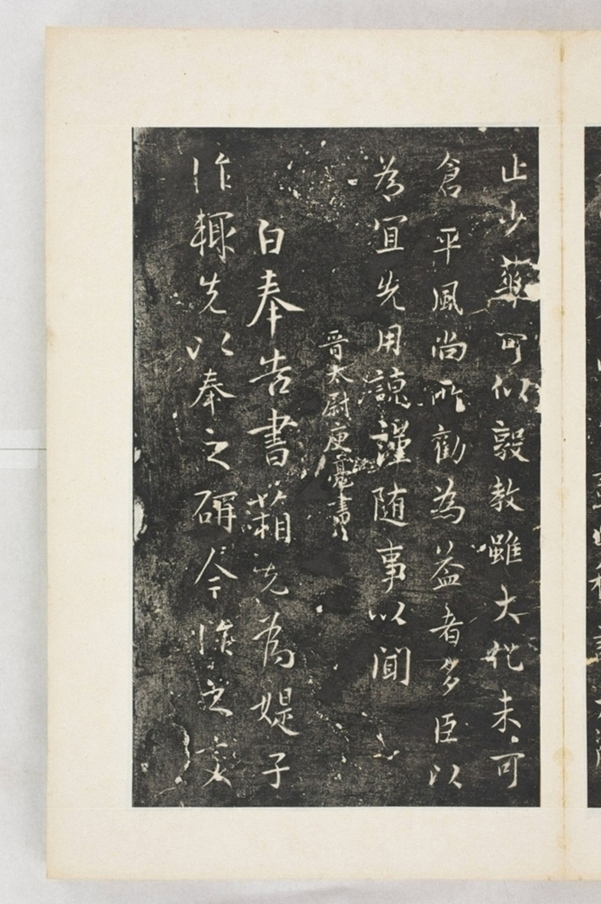 止少華可以敦教雖大化未可
倉平風尚所勸為益者多臣以
為宜先用謹隨事以聞
晋太尉庾亮書
白奉告書箱先為媞子
作輙先以奉之今作之